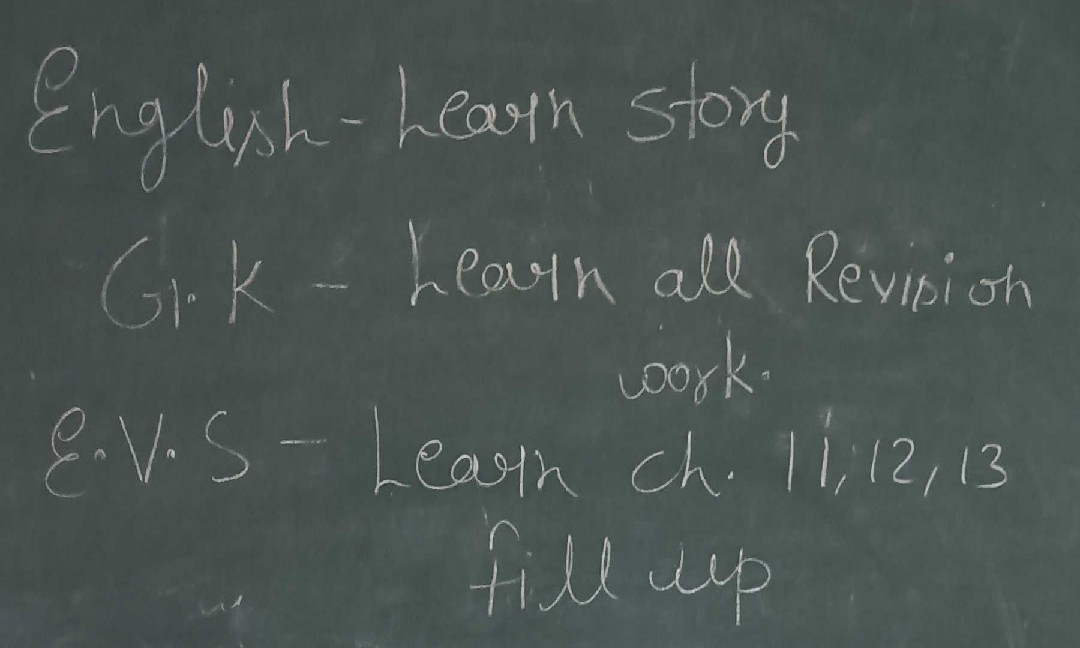 English - Learn story
G.K - Learn all Revision
work.
E.V.S - Learn ch. 11, 12, 13
fill up